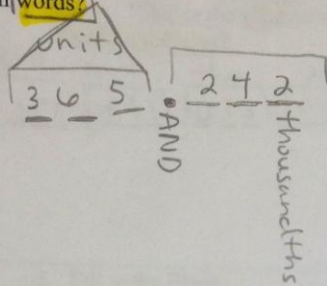 words?
units
3 6 5 . 2 4 2
AND
thousandths